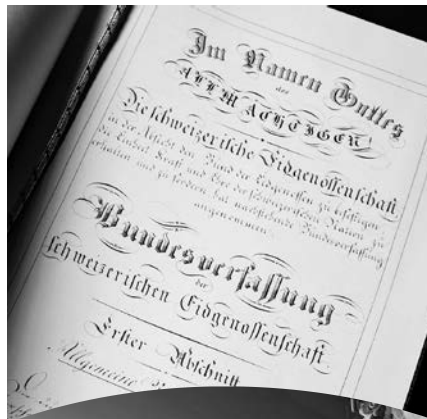 Im Namen Gottes
des
ALLMÄCHTIGEN!
Die schweizerische Eidgenossenschaft,
in der Absicht, den Bund der Eidgenossen zu befestigen,
die Einheit, Kraft und Ehre der schweizerischen Nation zu
erhalten und zu fördern, hat nachstehende Bundesverfassung
angenommen:
Bundesverfassung
der
schweizerischen Eidgenossenschaft.
Erster Abschnitt
Allgemeine